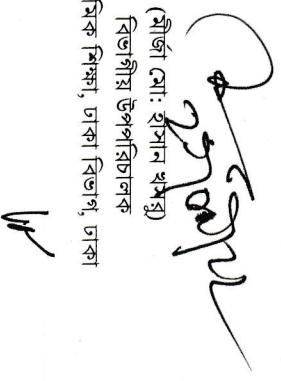 (মীর্জা মো: হাসান খসরু)
বিভাগীয় উপপরিচালক
মিক শিক্ষা, ঢাকা বিভাগ, ঢাকা